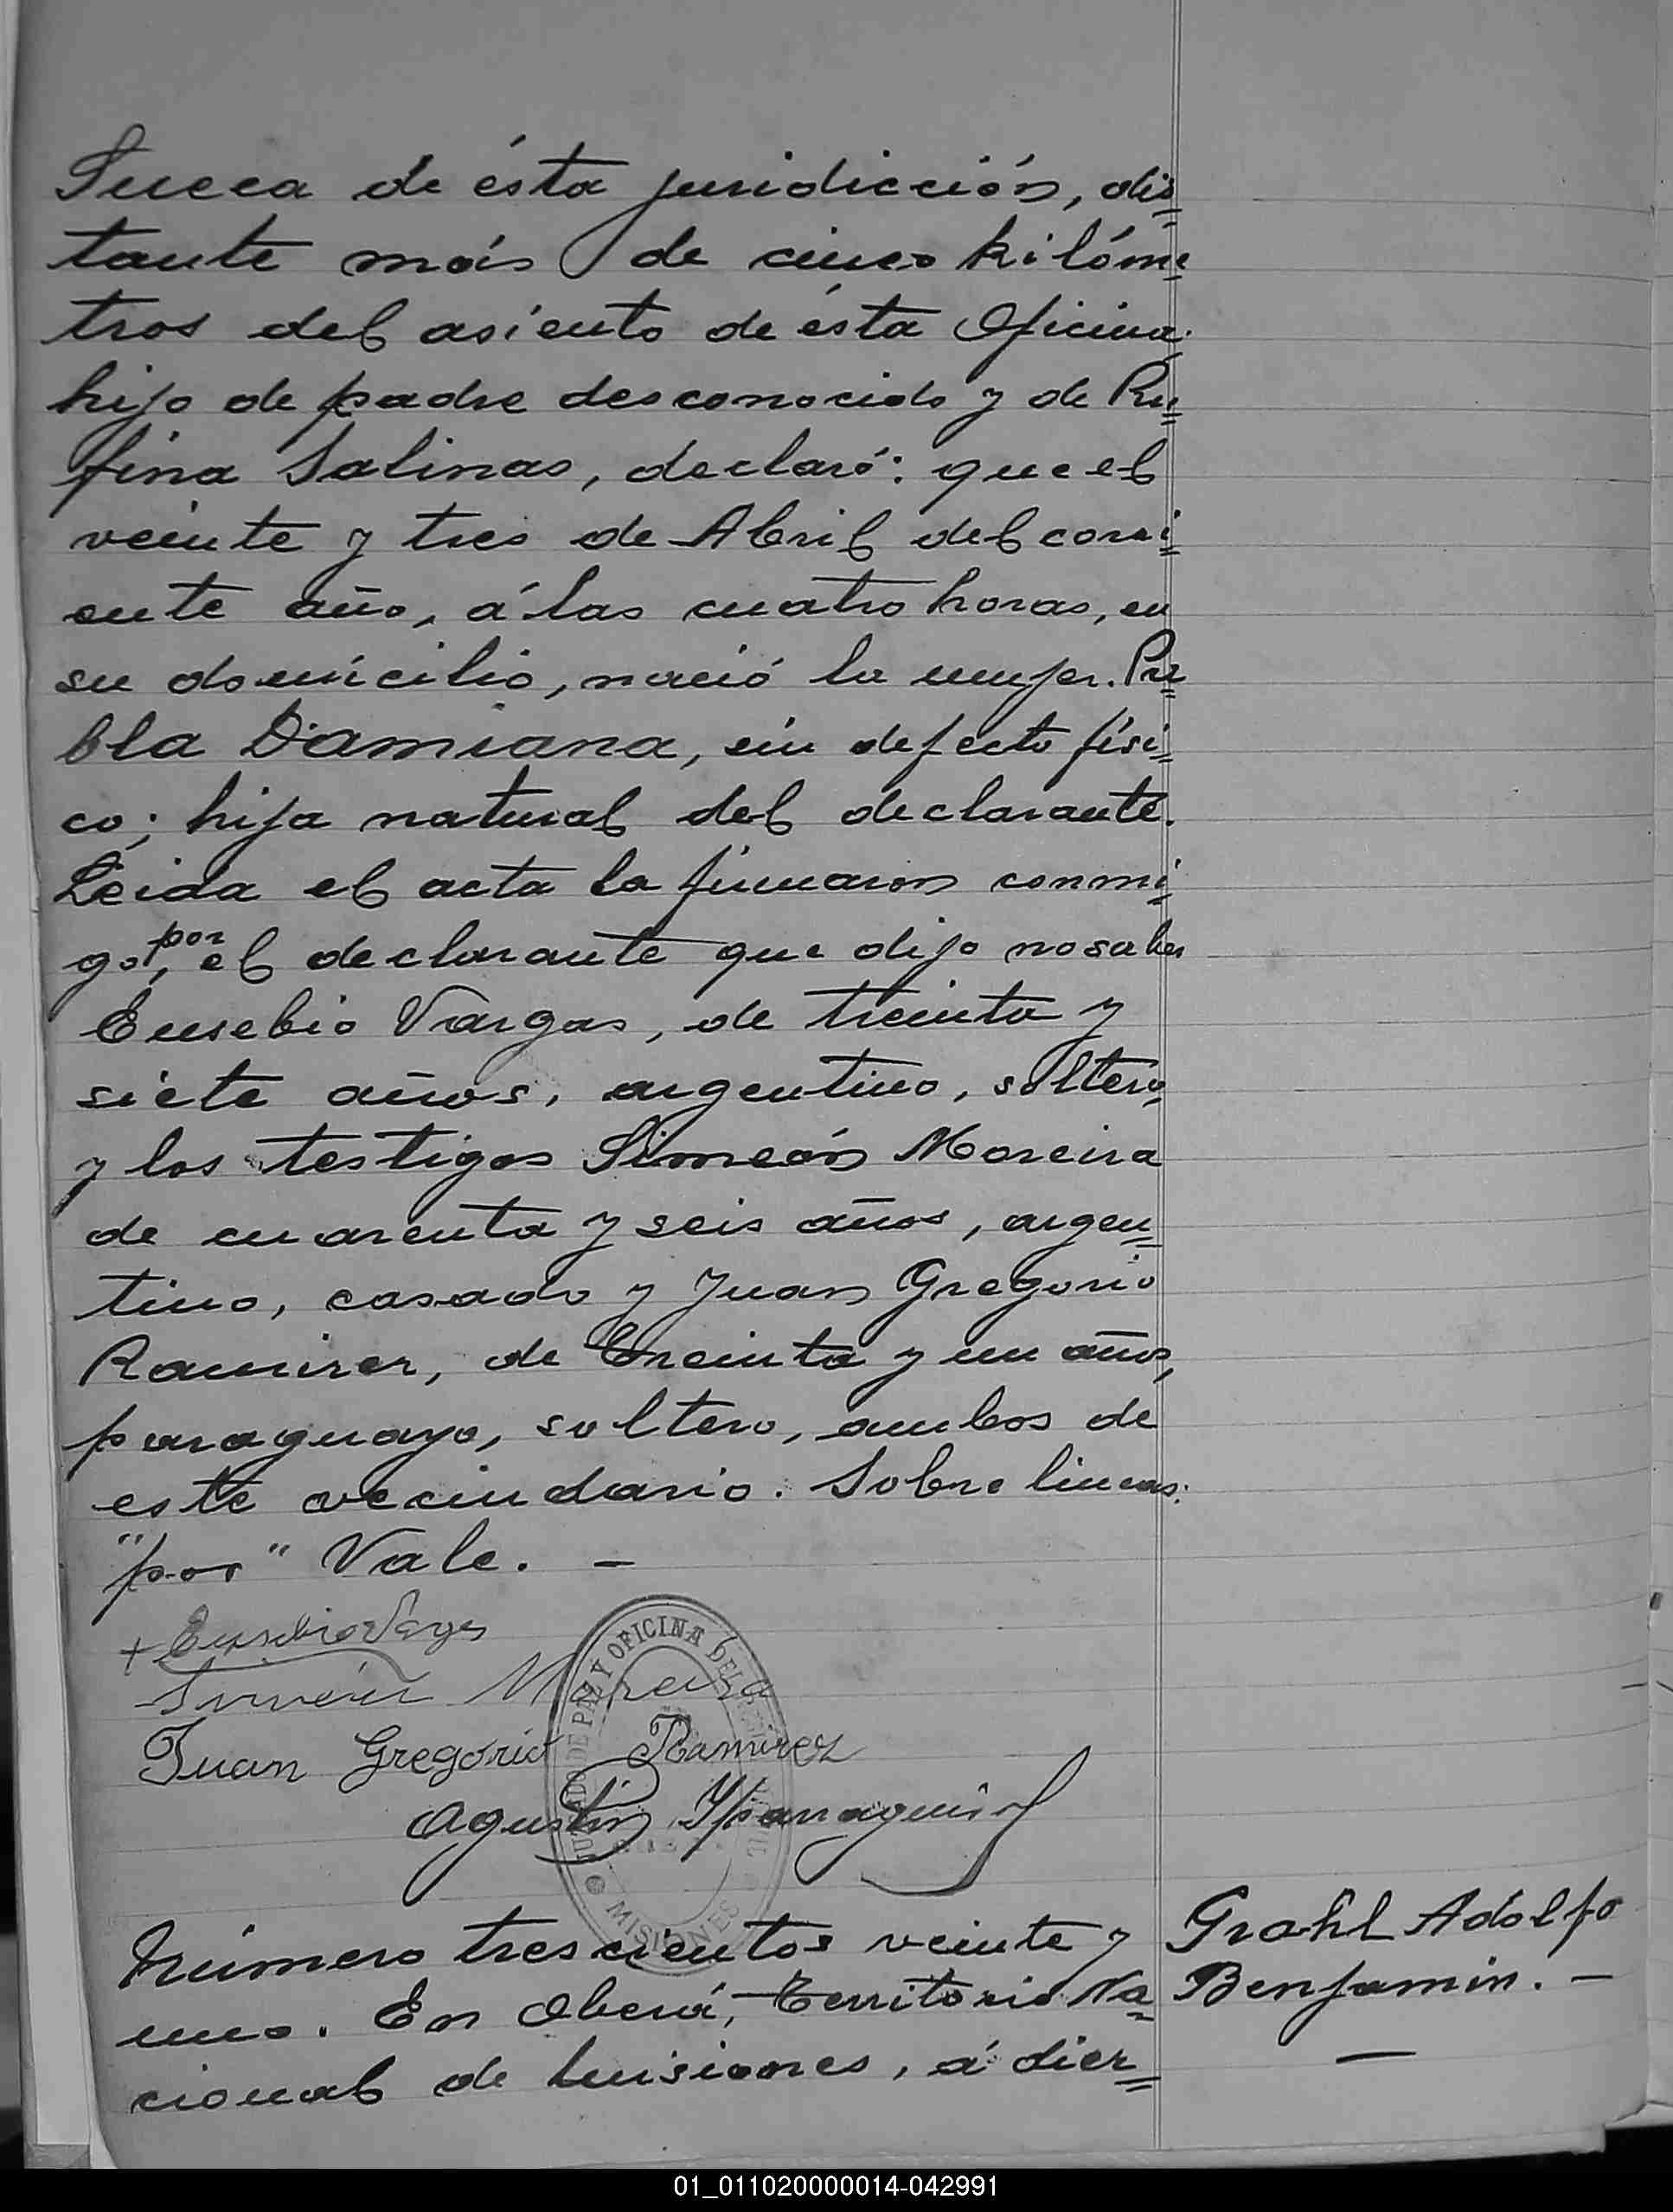 Sueca de ésta juridicción, dis=
tante más de cinco kilóme=
tros del asiento de ésta Oficina.
hijo de padre desconocido y de Ru=
fina Salinas, declaró: que el
veinte y tres de Abril del corri=
ente año, á las cuatro horas, en
su domicilio, nació la mujer. Pu=
bla Damiana, sin defecto físi=
co; hija natural del declarante.
Leida el acta la firmaron conmi=
go, por el declarante que dijo no saber
Eusebio Vargas, de treinta y
siete años, argentino, soltero,
y los testigos Simeón Moreira
de cuarenta y seis años, argen=
tino, casado y Juan Gregorio
Ramirez, de treinta y un años,
paraguayo, soltero, ambos de
este vecindario. Sobre lineas:
"por" Vale. —
+ Eusebio Vargas
Simeón Moreira
Juan Gregorio Ramirez
Agustín Yparraguirre
JUZGADO DE PAZ Y OFICINA DEL REGISTRO CIVIL
MISIONES
Número trescientos veinte y
uno. En Oberá, Territorio Na=
cional de Misiones, á diez=
Grahl Adolfo
Benjamin. —
—
01_011020000014-042991